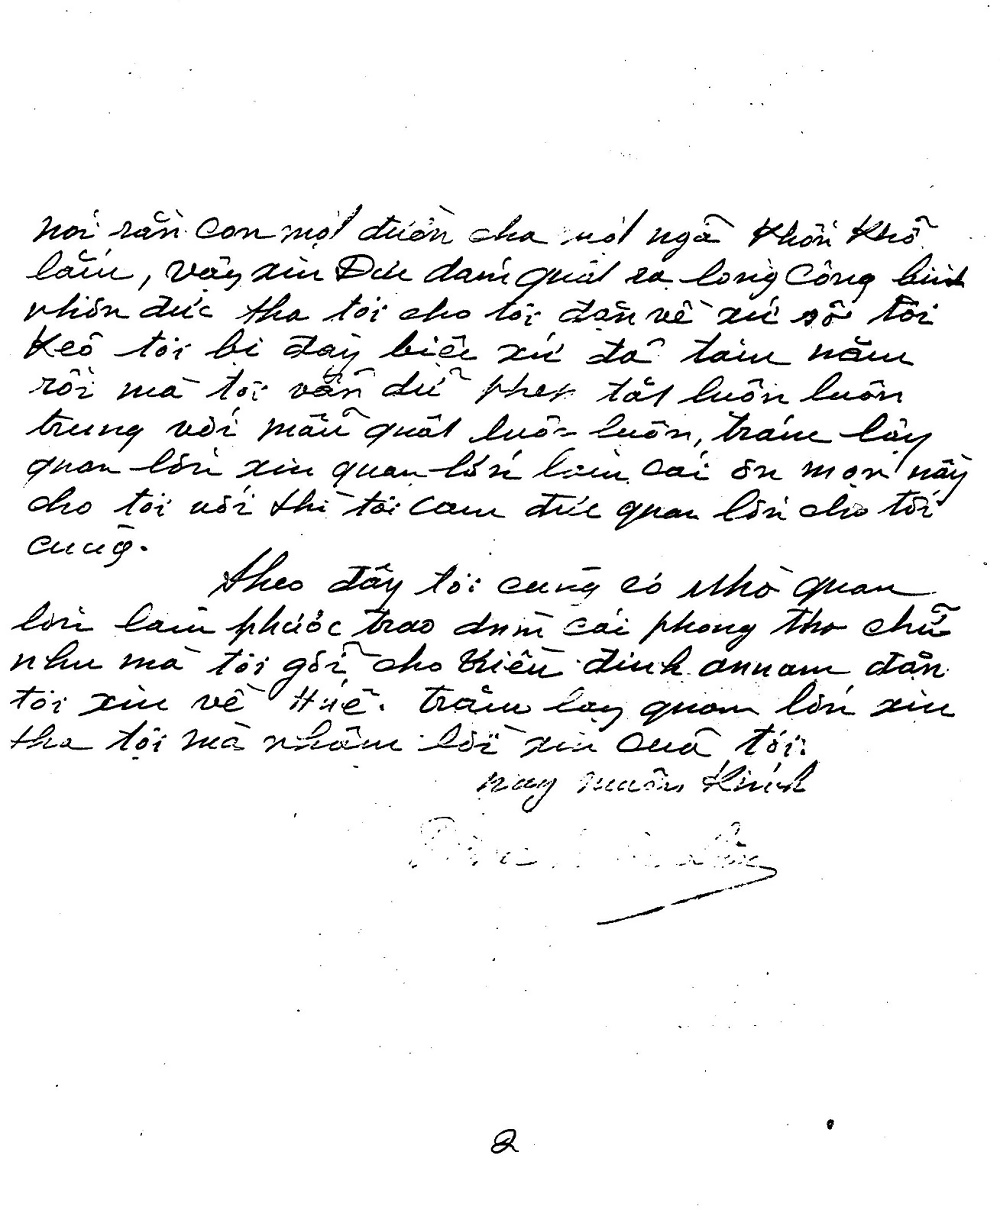 nói rằn con một đườn cha một ngã khốn khổ
lắm, vậy xin Đức đam quất ra lòng Công bình
nhơn đức tha tôi cho tôi đặn về xứ sở tôi
Kẽo tôi bị đày biệc xứ đã tám năm
rồi mà tôi vẫn dữ phép tắt luôn luôn
trung với mẫu quất luôn luôn, trăm lậy
quan lớn xin quan lớn làm cái ơn mọn nầy
cho tôi với thì tôi cam đức quan lớn cho tới
cùng.
theo đây tôi cũng có nhờ quan
lớn làm phước trao dùm cái phong thơ chữ
nhu mà tôi gởi cho triều đình annam đặn
tôi xin về Huế. trăm lạy quan lớn xin
tha tội mà nhậm lời xin cuả tôi.
nay muôn kính
2